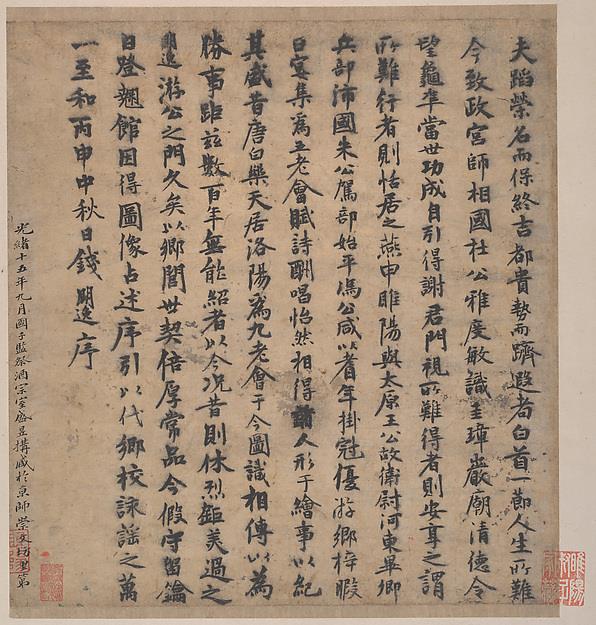 夫蹈榮名而保終吉都貴勢而躋遐耆白首一節人生所難
今致政宮師相國杜公雅度敏識圭璋巖廟清德令
望龜準當世功成自引得謝君門視所難得者則安享之謂
所難行者則恬居之燕申睢陽與太原王公故衛尉河東畢卿
兵部沛國朱公駕部始平馮公咸以耆年掛冠優游鄉梓暇
日宴集爲五老會賦詩酬唱怡然相得諸人形于繪事以紀
其盛昔唐白樂天居洛陽爲九老會于今圖識相傳以爲
勝事距兹數百年無能紹者以今况昔則休烈鉅美過之
明逸游公之門久矣以鄉閭世契倍厚常品今假守留鑰
日登翹館因得圖像占述序引以代鄉校詠謡之萬
一至和丙申中秋日錢明逸序
光緒十五年九月國子監祭酒宗室盛昱搆藏於京師